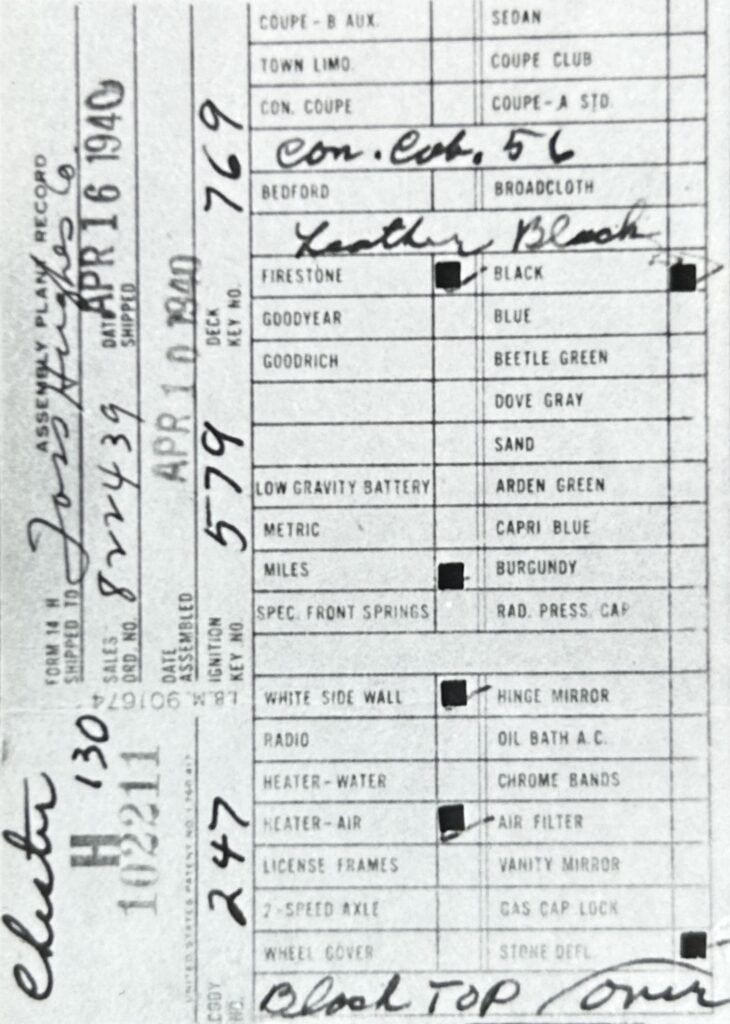 ASSEMBLY PLANT RECORD
FORM 14 H
SHIPPED TO Hughes Co.
SALES ORD. NO. 822439
DATE SHIPPED APR 16 1940
DATE ASSEMBLED APR 10 1940
IGNITION KEY NO. 579
DECK KEY NO. 769
I.B.M. 901674
Chester
H 130
102211
BODY NO. 247
COUPE - B AUX. SEDAN
TOWN LIMO. COUPE CLUB
CON. COUPE COUPE - A STD.
Con. Cob. 56
BEDFORD BROADCLOTH
Leather Black
FIRESTONE BLACK
GOODYEAR BLUE
GOODRICH BEETLE GREEN
DOVE GRAY
SAND
LOW GRAVITY BATTERY ARDEN GREEN
METRIC CAPRI BLUE
MILES BURGUNDY
SPEC. FRONT SPRINGS RAD. PRESS. CAP
WHITE SIDE WALL HINGE MIRROR
RADIO OIL BATH A.C.
HEATER - WATER CHROME BANDS
HEATER - AIR AIR FILTER
LICENSE FRAMES VANITY MIRROR
2-SPEED AXLE GAS CAP LOCK
WHEEL COVER STONE DEFL.
Black TOP Over